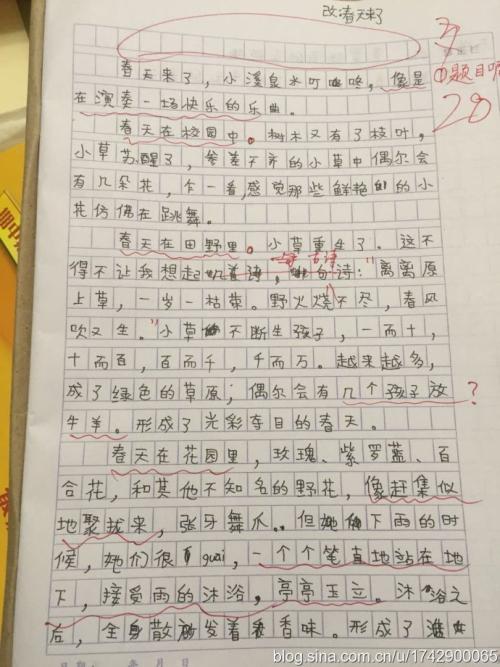 改:春天来了
①题目呢
28
春天来了,小溪泉水叮咚咚,像是
在演奏一场快乐的乐曲。
春天在校园中。树木又有了枝叶,
小草苏醒了,参差不齐的小草中偶尔会
有几朵花,乍一看,感觉那些鲜艳的小
花仿佛在跳舞。
春天在田野里。小草重生了。这不
得不让我想起一首古诗:"离离原
上草,一岁一枯荣。野火烧不尽,春风
吹又生。"小草不断生孩子,一而十,
十而百,百而千,千而万。越来越多,
成了绿色的草原;偶尔会有几个孩子放
牛羊。形成了光彩夺目的春天。
?
春天在花园里,玫瑰、紫罗蓝、百
合花,和其他不知名的野花,像赶集似
地聚拢来,张牙舞爪。但她们下雨的时
候,她们很guai,一个个笔直地站在地
下,接受雨的沐浴,亭亭玉立。沐浴之
后,全身散发着香味。形成了
blog.sina.com.cn/u/1742900065